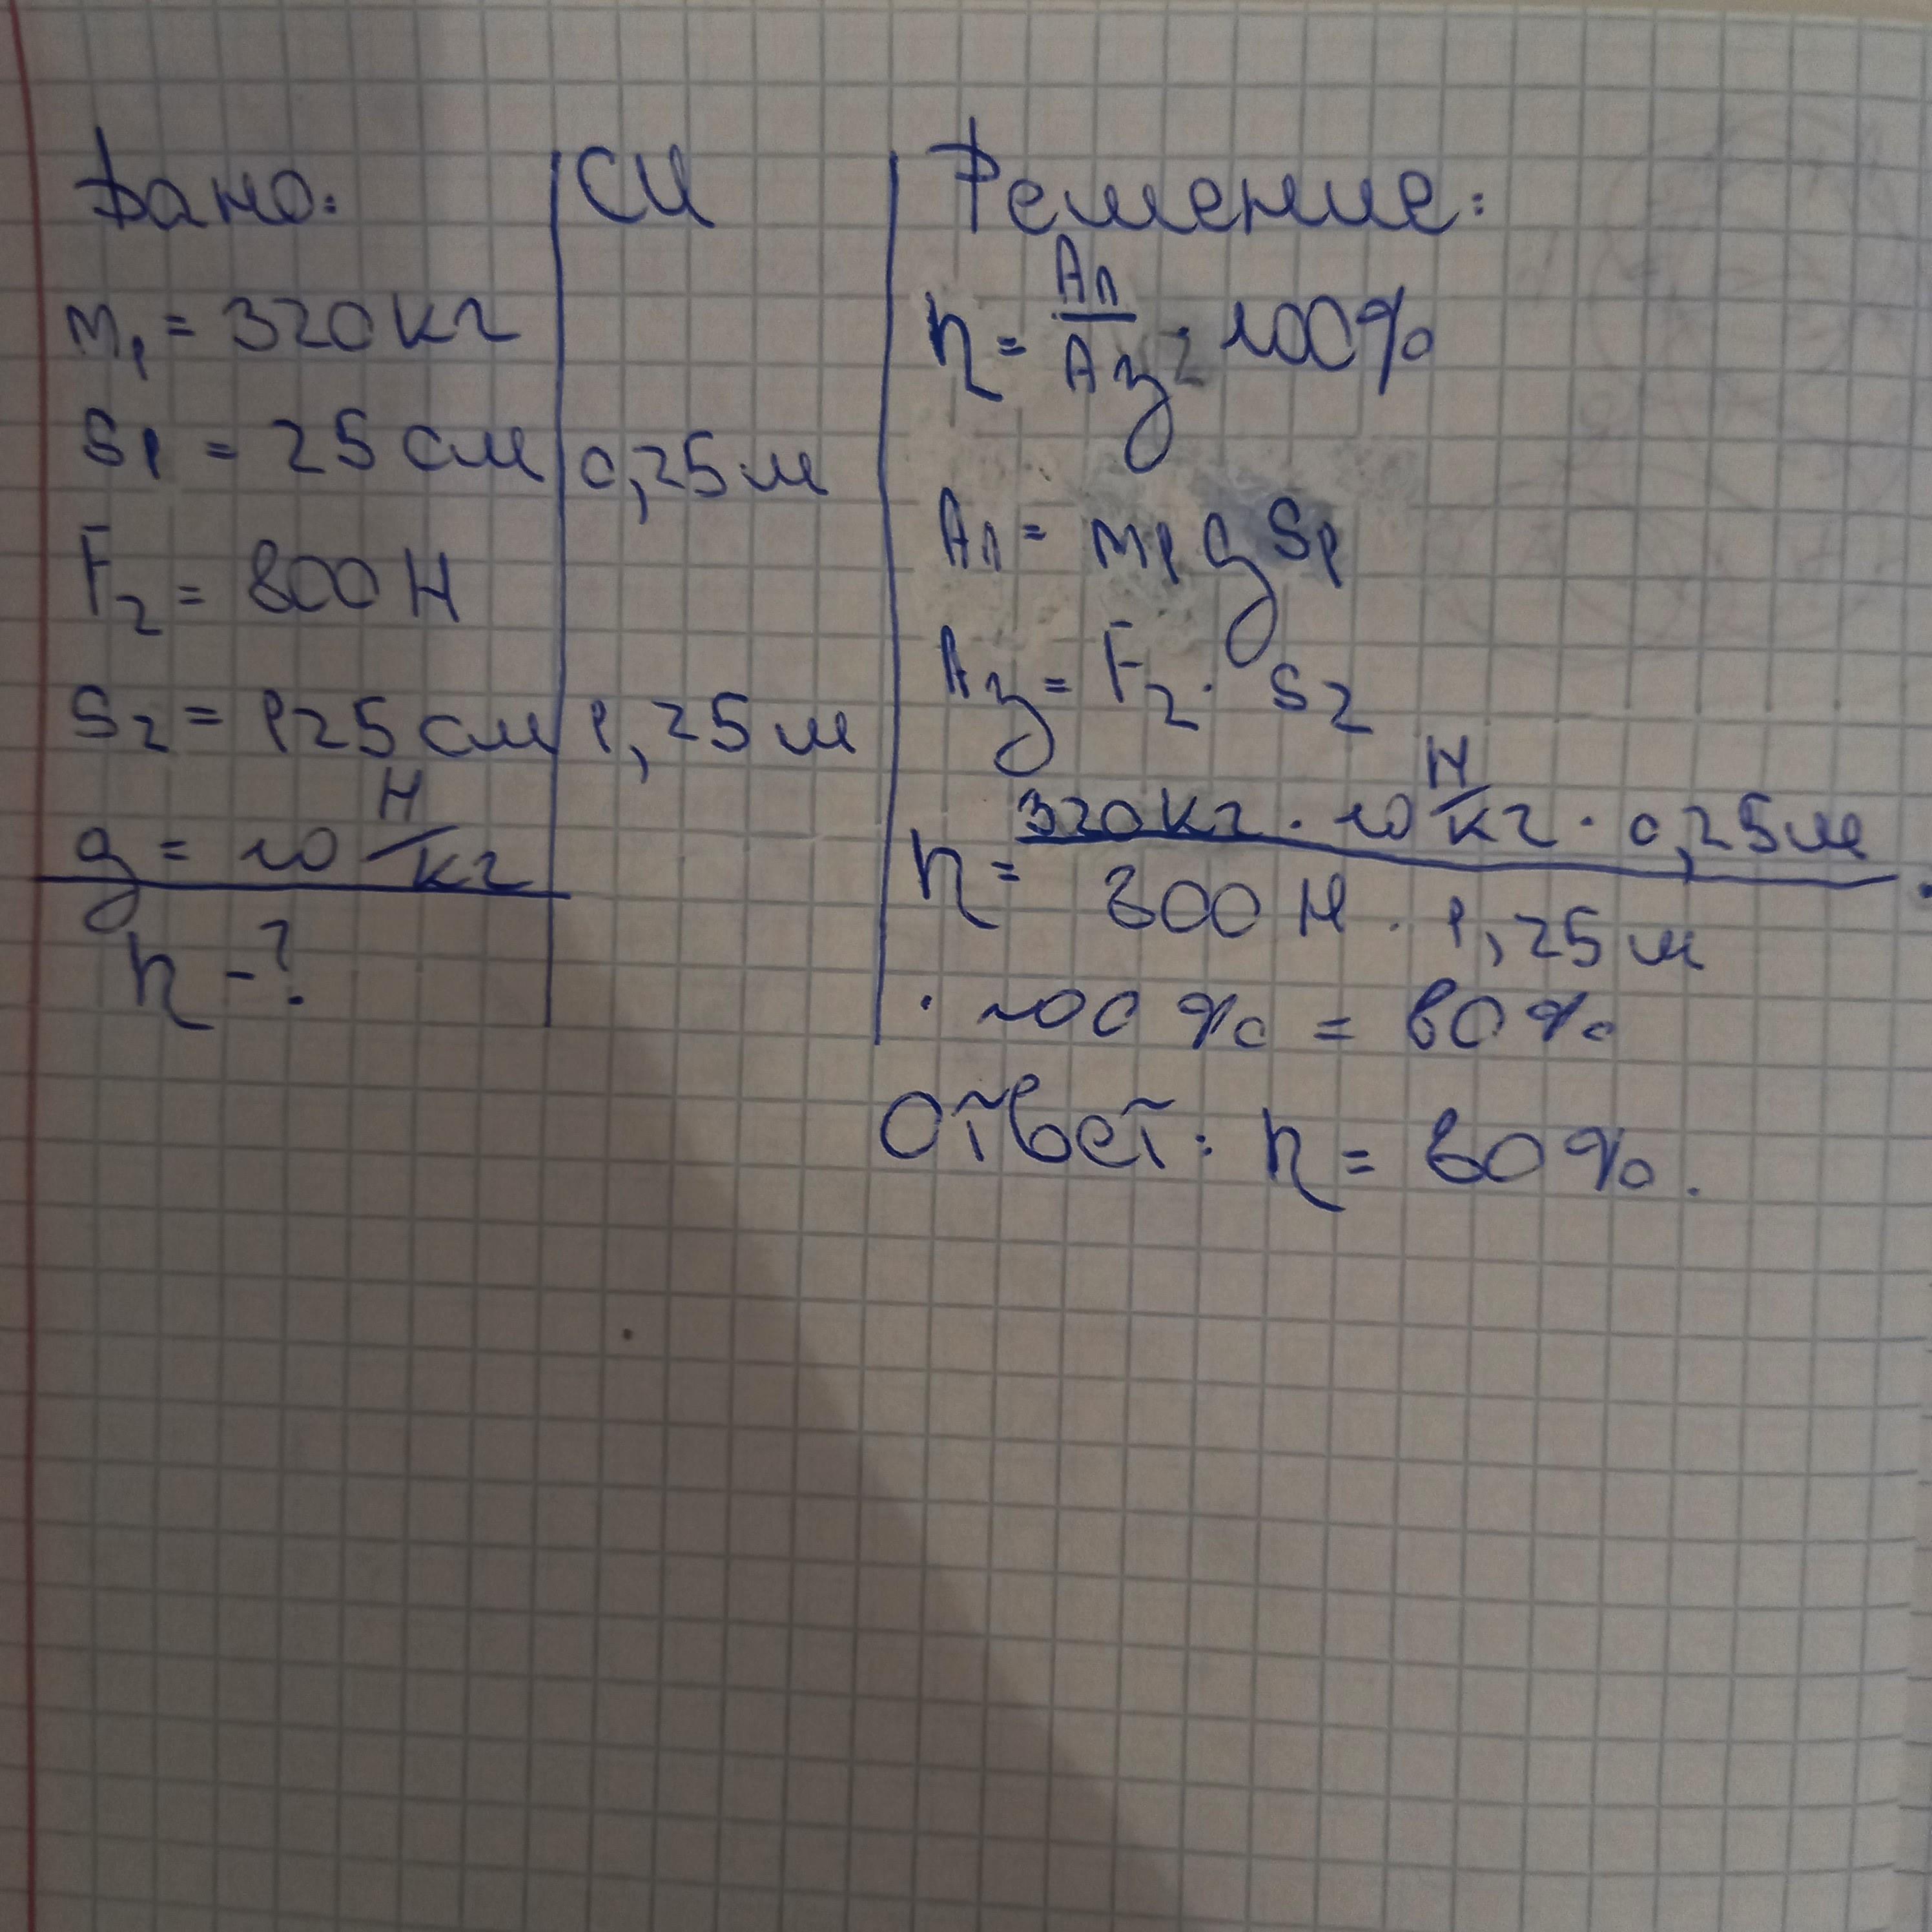 Дано:
m₁ = 320 кг
S₁ = 25 см
F₂ = 800 Н
S₂ = 125 см
g = 10 Н/кг
η - ?
СИ
0,25 м
1,25 м
Решение:
η = Ап/Аз · 100%
Ап = m₁ g S₁
Аз = F₂ · S₂
η = 320 кг · 10 Н/кг · 0,25 м / 800 Н · 1,25 м ·
· 100 % = 80 %
Ответ: η = 80 %.